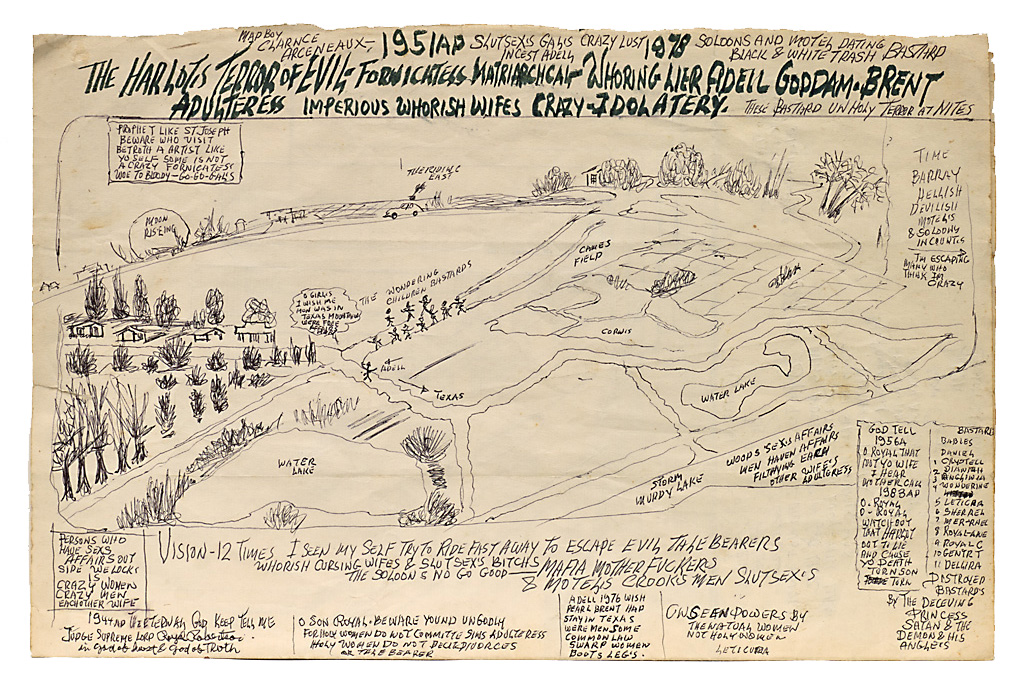 MAD BOY
CLARNCE
ARCENEAUX-,
1951AD
SLUTSEXIS GALIS CRAZY LUST
INCEST ADELL
1978
SOLOONS AND MOTEL DATING BASTARD
BLACK & WHITE TRASH BASTARD
THE HARLOTIS TERROR OF EVIL- FORNICATESS MATRIARCHCAL- WHORING LIER ADELL GODDAM. BRENT
ADULTERESS IMPERIOUS WHORISH WIFES CRAZY-IDOLATERY. THESE BASTARD UNHOLY TERROR AT NITES
PROPHET LIKE ST. JOSEPH
BEWARE WHO VISIT
BETROTH A ARTIST LIKE
YO SELF SOME IS NOT
A CRAZY FORNICATESS
WOE TO BLOODY-GO-GO-GALIS
THE RIDING
EAST
MOON
RISEING
TIME
BARRAY
HELLISH
DEVILISH
MOTELIS
& SOLOONY
INCOUNTIS
I'M ESCAPING
MANY WHO
THINK I'M
CRAZY
CANES
FIELD
O GIRLIS
I WISH ME
MON WAS IN
TEXAS MOUNTAIN
WERE FREE
THE WONDERING
CHILDREN BASTARDS
CORNIS
ADELL
TEXAS
WATER LAKE
WATER
LAKE
STORM
MURDY LAKE
WOODS SEXIS AFFAIRS
MEN HAVEN AFFAIRS
FILTHYING EARTH
OTHER WIFE'S
ADULTGRESS
GOD TELL
1956A
O ROYAL THAT
NOT YO WIFE
I HEAR
MOTHER CALL
1983 AD
O-ROYAL
O-ROYAL
WATCH OUT
THAT HARLOT
OUT TO LIE
AND CAUSE
YO DEATH
TORNSON
TORN
BASTARD
BABIES
DANIEL
1 CRYSTELL
2
3
4 WONDERINE
5 LETICRA
6 SHERREL
7 MER-RHEL
8 ROYAL-ANE
9 ROYAL C
10 GENTRT
11 DELURA
DISTROYED
BASTARDS
BY THE DECEVING
PRINCESS
SATAN & THE
DEMON & HIS
ANGLE'S
PERSONS WHO
HAVE SEXS
AFFAIRS OUT
SIDE WELOCK'S
IS
CRAZY WOMEN
CRAZY MEN
EACHOTHER WIFE
VISION-12 TIMES I SEEN MY SELF TRY TO RIDE FAST AWAY TO ESCAPE EVIL TALE BEARERS
WHORISH CURSING WIFES & SLUTSEXIS BITCHS- MAFIA MOTHER FUCKERS
THE SOLOON IS NO GO GOOD- & MOTELIS CROOKS MEN SLUTSEXIS
1944 AD THE ETERNAL GOD KEEP TELL ME
JUDGE SUPREME LORD Royal Robertson.
in god of host & God of Troth
O SON ROYAL-BEWARE YOUND UNGODLY
FOR HOLY WOMEN DO NOT COMMITE SINS ADULTRESS
HOLY WOMEN DO NOT DECIED/VORCES
OR TALE BEARER
ADELL 1976 WISH
PEARL BRENT HAD
STAY IN TEXAS
WERE MEN SOME
COMMON LAW
SWARP WOMEN
BOOTS LEG'S.
UNSEEN POWERS BY
THE NATUAL WOMEN
NOT HOLY WOMEN
LETICURA